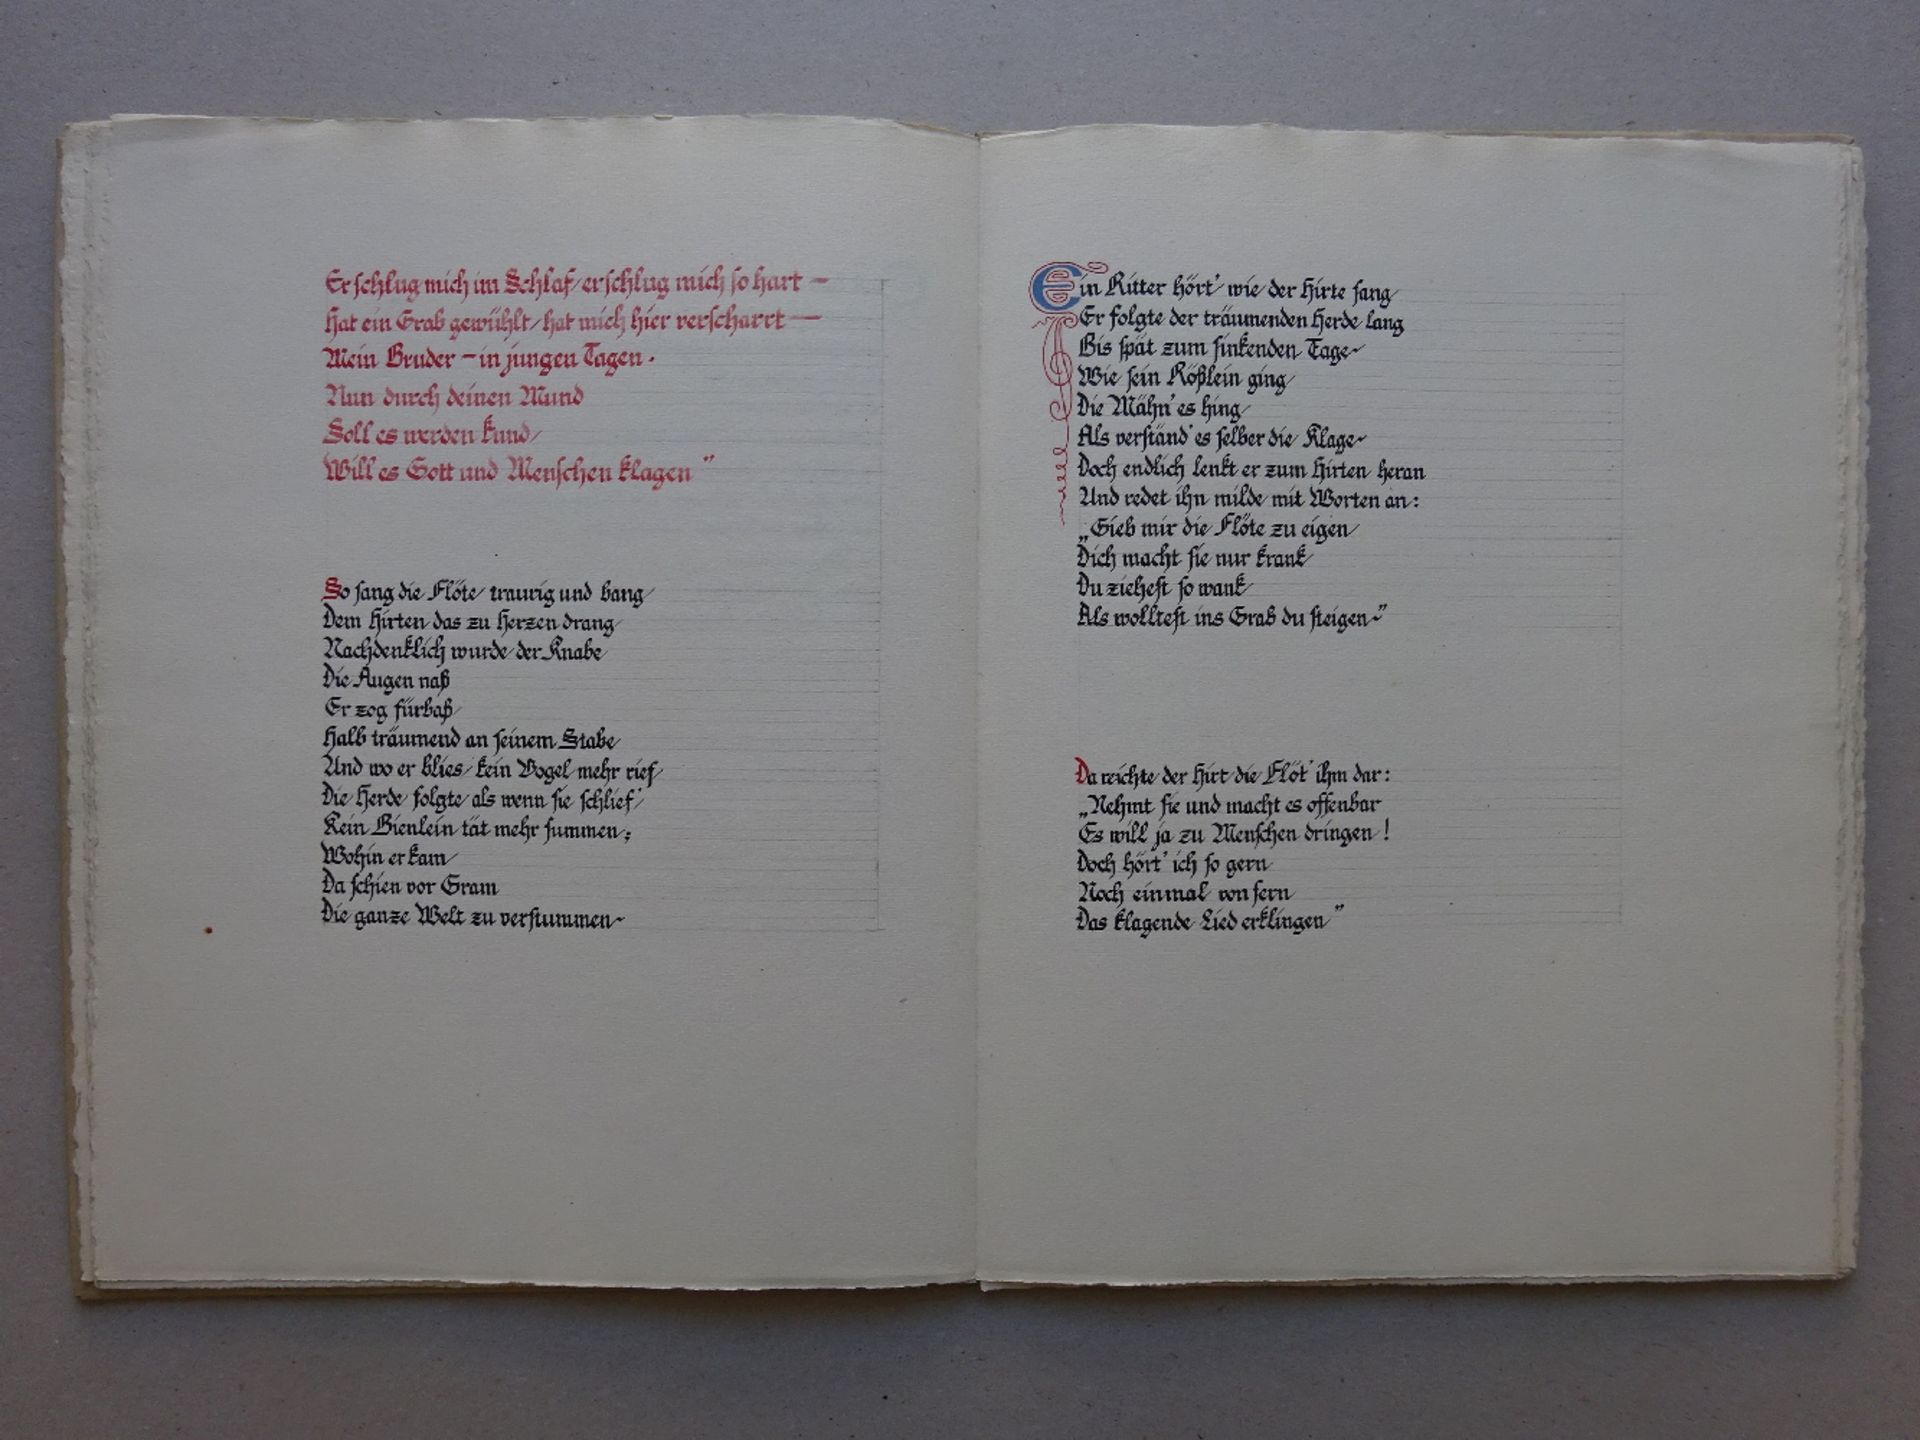 Er schlug mich im Schlaf/ erschlug mich so hart —
Hat ein Grab gewühlt/ hat mich hier verscharrt —
Mein Bruder — in jungen Tagen.
Nun durch deinen Mund
Soll es werden kund/
Will es Gott und Menschen klagen”
So sang die Flöte/ traurig und bang/
Dem Hirten das zu Herzen drang/
Nachdenklich wurde der Knabe/
Die Augen naß
Er zog fürbaß/
Halb träumend an seinem Stabe/
And wo er blies/ kein Vogel mehr rief/
Die Herde folgte/ als wenn sie schlief/
Kein Bienlein tät mehr summen;
Wohin er kam/
Da schien vor Gram
Die ganze Welt zu verstummen~
Ein Ritter hört’ wie der Hirte sang/
Er folgte der träumenden Herde lang
Bis spät zum sinkenden Tage~
Wie sein Rößlein ging/
Die Mähn’ es hing/
Als verständ’ es selber die Klage~
Doch endlich lenkt er zum Hirten heran
And redet ihn milde mit Worten an:
„Gieb mir die Flöte zu eigen/
Dich macht sie nur krank/
Du ziehest so wank/
Als wolltest ins Grab du steigen~”
Da reichte der Hirt die Flöt’ ihm dar:
„Nehmt sie und macht es offenbar
Es will ja zu Menschen dringen!
Doch hört’ ich so gern
Noch einmal von fern
Das klagende Lied erklingen”